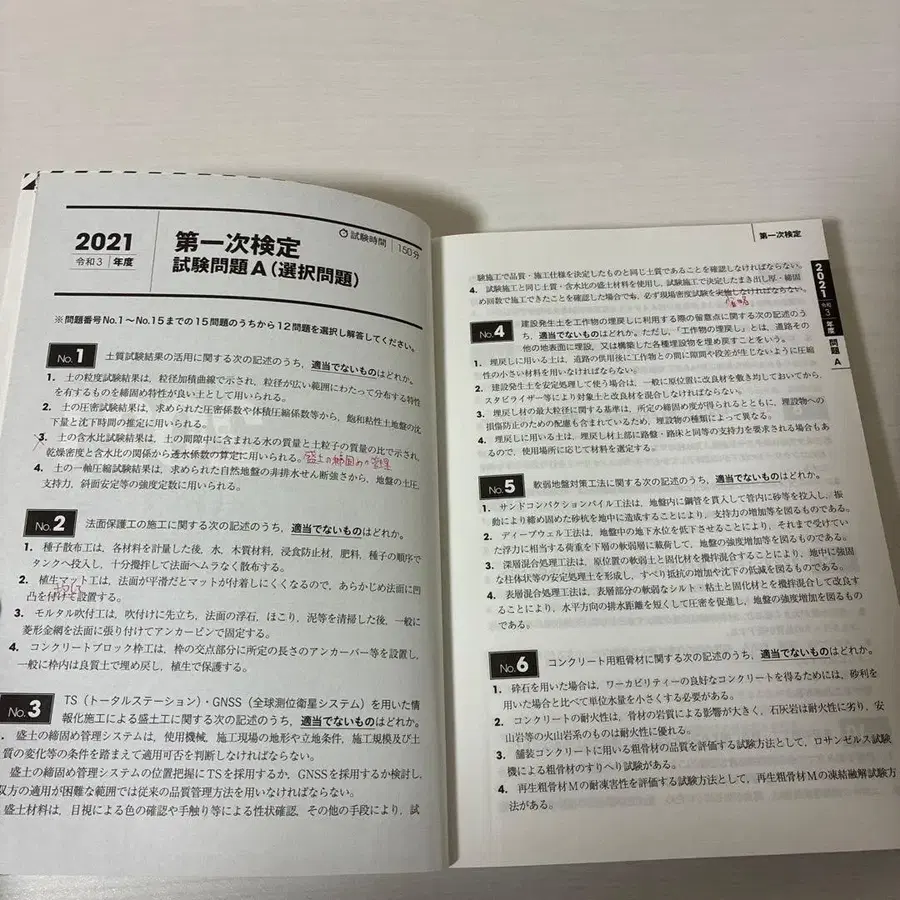 2021
令和3 年度
第一次検定
試験問題A（選択問題）
試験時間 150分
※問題番号No.1〜No.15までの15問題のうちから12問題を選択し解答してください。
No.1 土質試験結果の活用に関する次の記述のうち，適当でないものはどれか。
1. 土の粒度試験結果は，粒径加積曲線で示され，粒径が広い範囲にわたって分布する特性
を有するものを締固め特性が良い土として用いられる。
2. 土の圧密試験結果は，求められた圧密係数や体積圧縮係数等から，飽和粘性土地盤の沈
下量と沈下時間の推定に用いられる。
3. 土の含水比試験結果は，土の間隙中に含まれる水の質量と土粒子の質量の比で示され，
乾燥密度と含水比の関係から透水係数の算定に用いられる。盛土の締固めの管理
4. 土の一軸圧縮試験結果は，求められた自然地盤の非排水せん断強さから，地盤の土圧，
支持力，斜面安定等の強度定数に用いられる。
No.2 法面保護工の施工に関する次の記述のうち，適当でないものはどれか。
1. 種子散布工は，各材料を計量した後，水，木質材料，浸食防止材，肥料，種子の順序で
タンクへ投入し，十分攪拌して法面へムラなく散布する。
2. 植生マット工は，法面が平滑だとマットが付着しにくくなるので，あらかじめ法面に凹
凸を付けて設置する。
3. モルタル吹付工は，吹付けに先立ち，法面の浮石，ほこり，泥等を清掃した後，一般に
菱形金網を法面に張り付けてアンカーピンで固定する。
4. コンクリートブロック枠工は，枠の交点部分に所定の長さのアンカーバー等を設置し，
一般に枠内は良質土で埋め戻し，植生で保護する。
No.3 TS（トータルステーション）・GNSS（全球測位衛星システム）を用いた情
報化施工による盛土工に関する次の記述のうち，適当でないものはどれか。
盛土の締固め管理システムは，使用機械，施工現場の地形や立地条件，施工規模及び土
質の変化等の条件を踏まえて適用可否を判断しなければならない。
盛土の締固め管理システムの位置把握にTSを採用するか，GNSSを採用するか検討し，
双方の適用が困難な範囲では従来の品質管理方法を用いなければならない。
盛土材料は，目視による色の確認や手触り等による性状確認，その他の手段により，試
第一次検定
験施工で品質・施工仕様を決定したものと同じ土質であることを確認しなければならない。
4. 試験施工と同じ土質・含水比の盛土材料を使用し，試験施工で決定したまき出し厚・締固
め回数で施工できたことを確認した場合でも，必ず現場密度試験を実施しなければならない。
省略
No.4 建設発生土を工作物の埋戻しに利用する際の留意点に関する次の記述のう
ち，適当でないものはどれか。ただし，「工作物の埋戻し」とは，道路その
他の地表面に埋設，又は構築した各種埋設物を埋め戻すことをいう。
1. 埋戻しに用いる土は，道路の供用後に工作物との間に隙間や段差が生じないように圧縮
性の小さい材料を用いなければならない。
2. 建設発生土を安定処理して使う場合は，一般に原位置に改良材を敷き均しておいてから，
スタビライザー等により対象土と改良材を混合しなければならない。
3. 埋戻し材の最大粒径に関する基準は，所定の締固め度が得られるとともに，埋設物への
損傷防止のための配慮も含まれているため，埋設物の種類によって異なる。
4. 埋戻しに用いる土は，埋戻し材上部に路盤・路床と同等の支持力を要求される場合もあ
るので，使用場所に応じて材料を選定する。
No.5 軟弱地盤対策工法に関する次の記述のうち，適当でないものはどれか。
1. サンドコンパクションパイル工法は，地盤内に鋼管を貫入して管内に砂等を投入し，振
動により締め固めた砂杭を地中に造成することにより，支持力の増加等を図るものである。
2. ディープウェル工法は，地盤中の地下水位を低下させることにより，それまで受けてい
た浮力に相当する荷重を下層の軟弱層に載荷して，地盤の強度増加等を図るものである。
3. 深層混合処理工法は，原位置の軟弱土と固化材を攪拌混合することにより，地中に強固
な柱体状等の安定処理土を形成し，すべり抵抗の増加や沈下の低減を図るものである。
4. 表層混合処理工法は，表層部分の軟弱なシルト・粘土と固化材とを攪拌混合して改良す
ることにより，水平方向の排水距離を短くして圧密を促進し，地盤の強度増加を図るもの
である。
No.6 コンクリート用粗骨材に関する次の記述のうち，適当でないものはどれか。
1. 砕石を用いた場合は，ワーカビリティーの良好なコンクリートを得るためには，砂利を
用いた場合と比べて単位水量を小さくする必要がある。
2. コンクリートの耐火性は，骨材の岩質による影響が大きく，石灰岩は耐火性に劣り，安
山岩等の火山岩系のものは耐火性に優れる。
3. 舗装コンクリートに用いる粗骨材の品質を評価する試験方法として，ロサンゼルス試験
機による粗骨材のすりへり試験がある。
4. 再生粗骨材Mの耐凍害性を評価する試験方法として，再生粗骨材Mの凍結融解試験方
法がある。
2021 令和3 年度 問題A